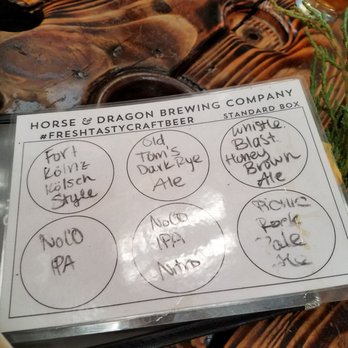 HORSE & DRAGON BREWING COMPANY
#FRESHTASTYCRAFTBEER
STANDARD BOX
Fort
Kölnz
Kölsch
Style
Old
Tom's
Dark Rye
Ale
Whistle
Blast
Honey
Brown
Ale
NoCO
IPA
NoCO
IPA
Nitro
Picnic
Rock
Pale
Ale